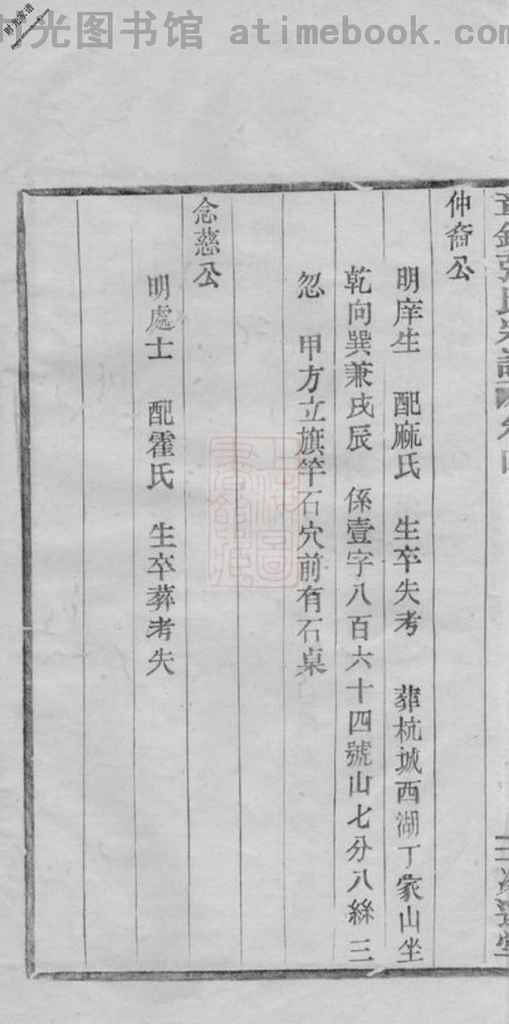 时光图书馆 atimebook.com
仲裔公
明庠生 配麻氏 生卒失考 葬杭城西湖丁家山坐
乾向巽兼戌辰 係壹字八百六十四號山七分八絲三
忽 甲方立旗竿石穴前有石桌
念慈公
明處士 配霍氏 生卒葬考失